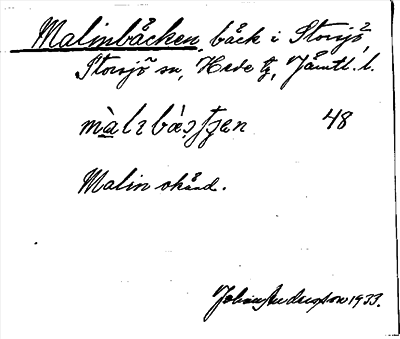 Malinbäcken, bäck i Storsjö,
Storsjö sn, Hede tg, Jämtl. l.
48
Malin okänd.
Johan Anderson 1933.